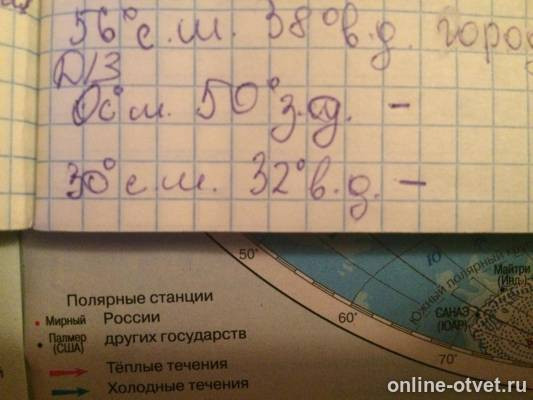 56° с.ш. 38° в.д. город
Д/З
0° с ш. 50° з.д. –
30° с.ш. 32° в.д. –
50°
60°
70°
Южный полярный
Майтри
(Инд.)
САНАЭ
(ЮАР)
Полярные станции
Мирный России
Палмер
(США) других государств
Тёплые течения
Холодные течения
online-otvet.ru